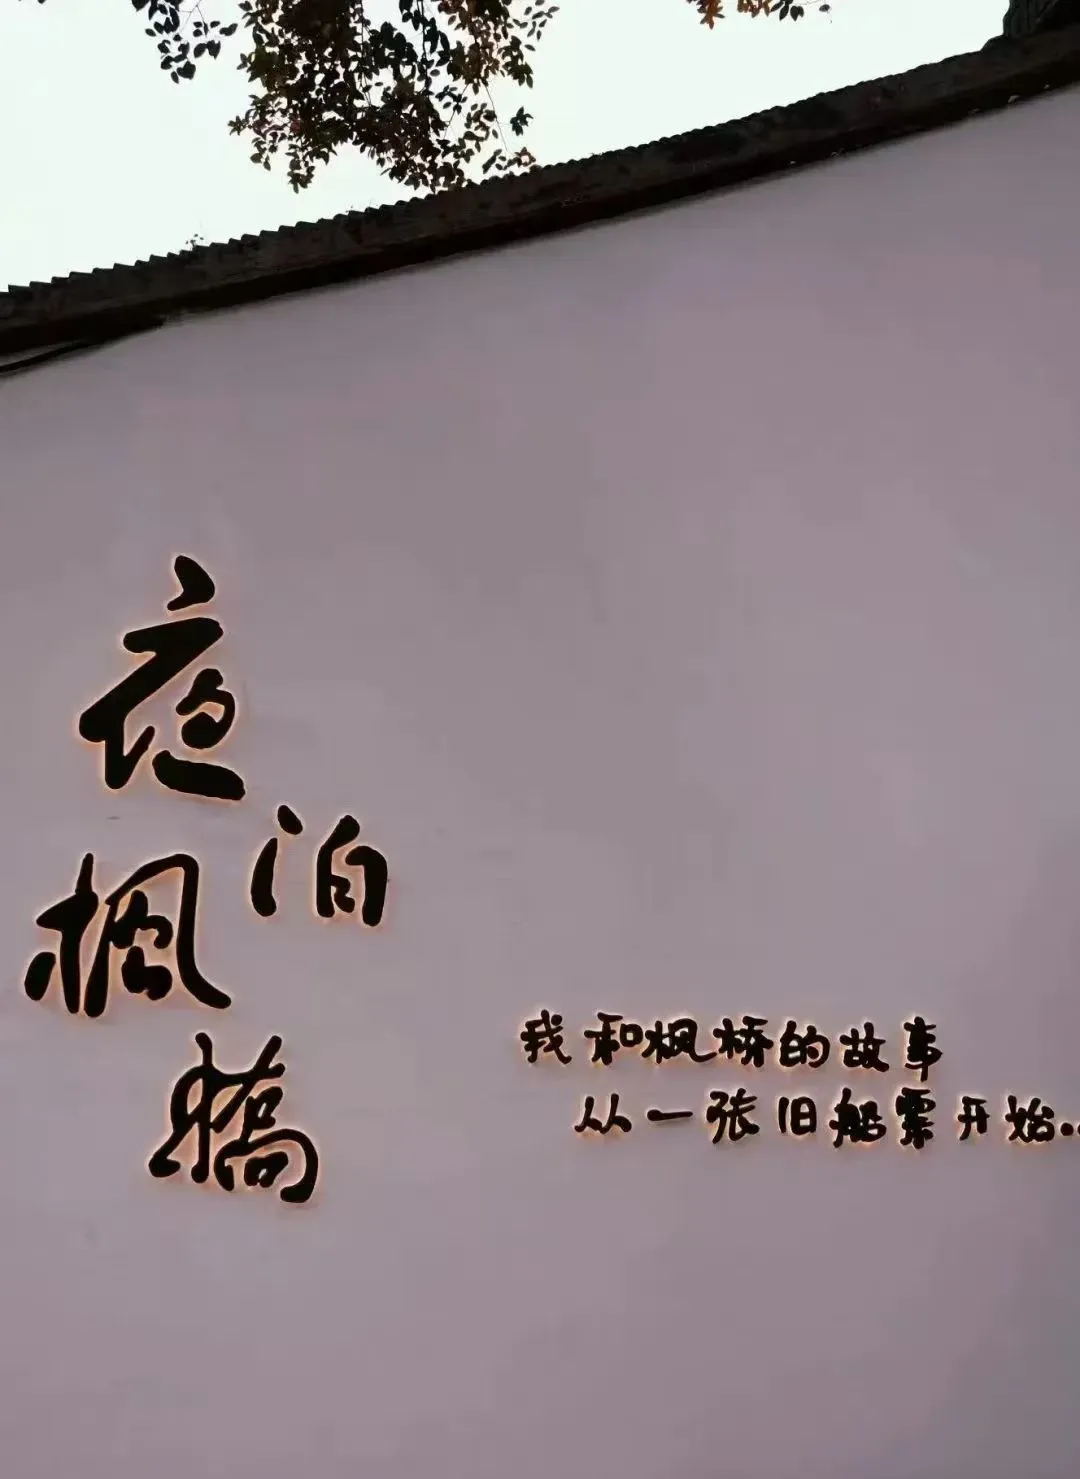 夜泊
枫橋
我和枫桥的故事
从一张旧船票开始..